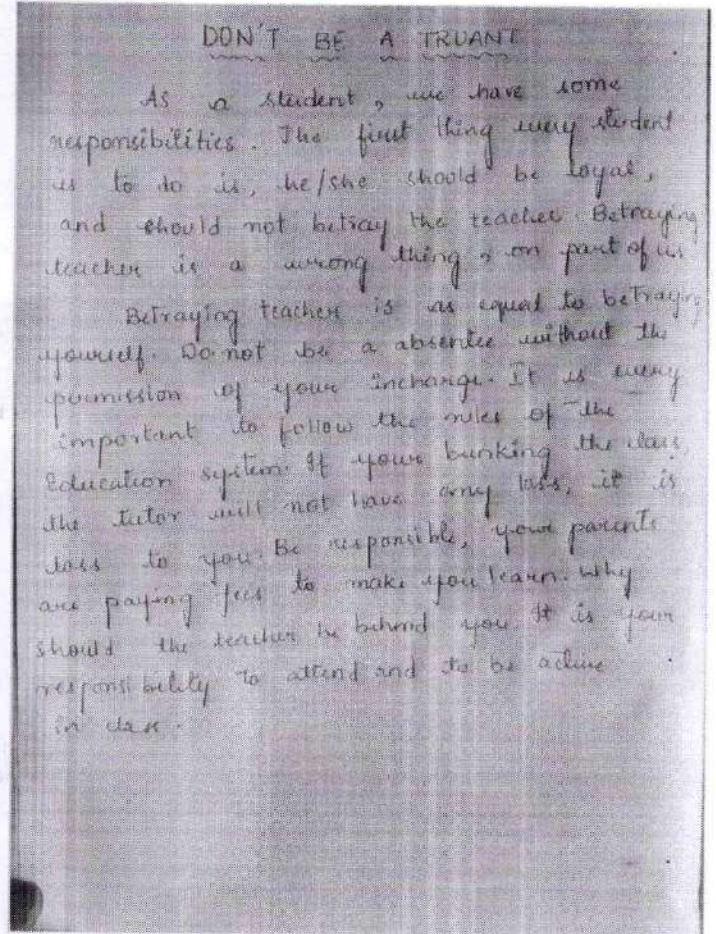 DON'T BE A TRUANT
As a student, we have some
responsibilities. The first thing every student
is to do is, he/she should be loyal,
and should not betray the teacher. Betraying
teacher is a wrong thing, on part of us
Betraying teacher is as equal to betraying
yourself. Do not be a absentee without the
permission of your incharge. It is every
important to follow the rules of the
Education system. If your bunking the class,
the tutor will not have any loss, it is
loss to you. Be responsible, your parents
are paying fees to make you learn. Why
should the teacher be behind you. It is your
responsibility to attend and to be active
in class.